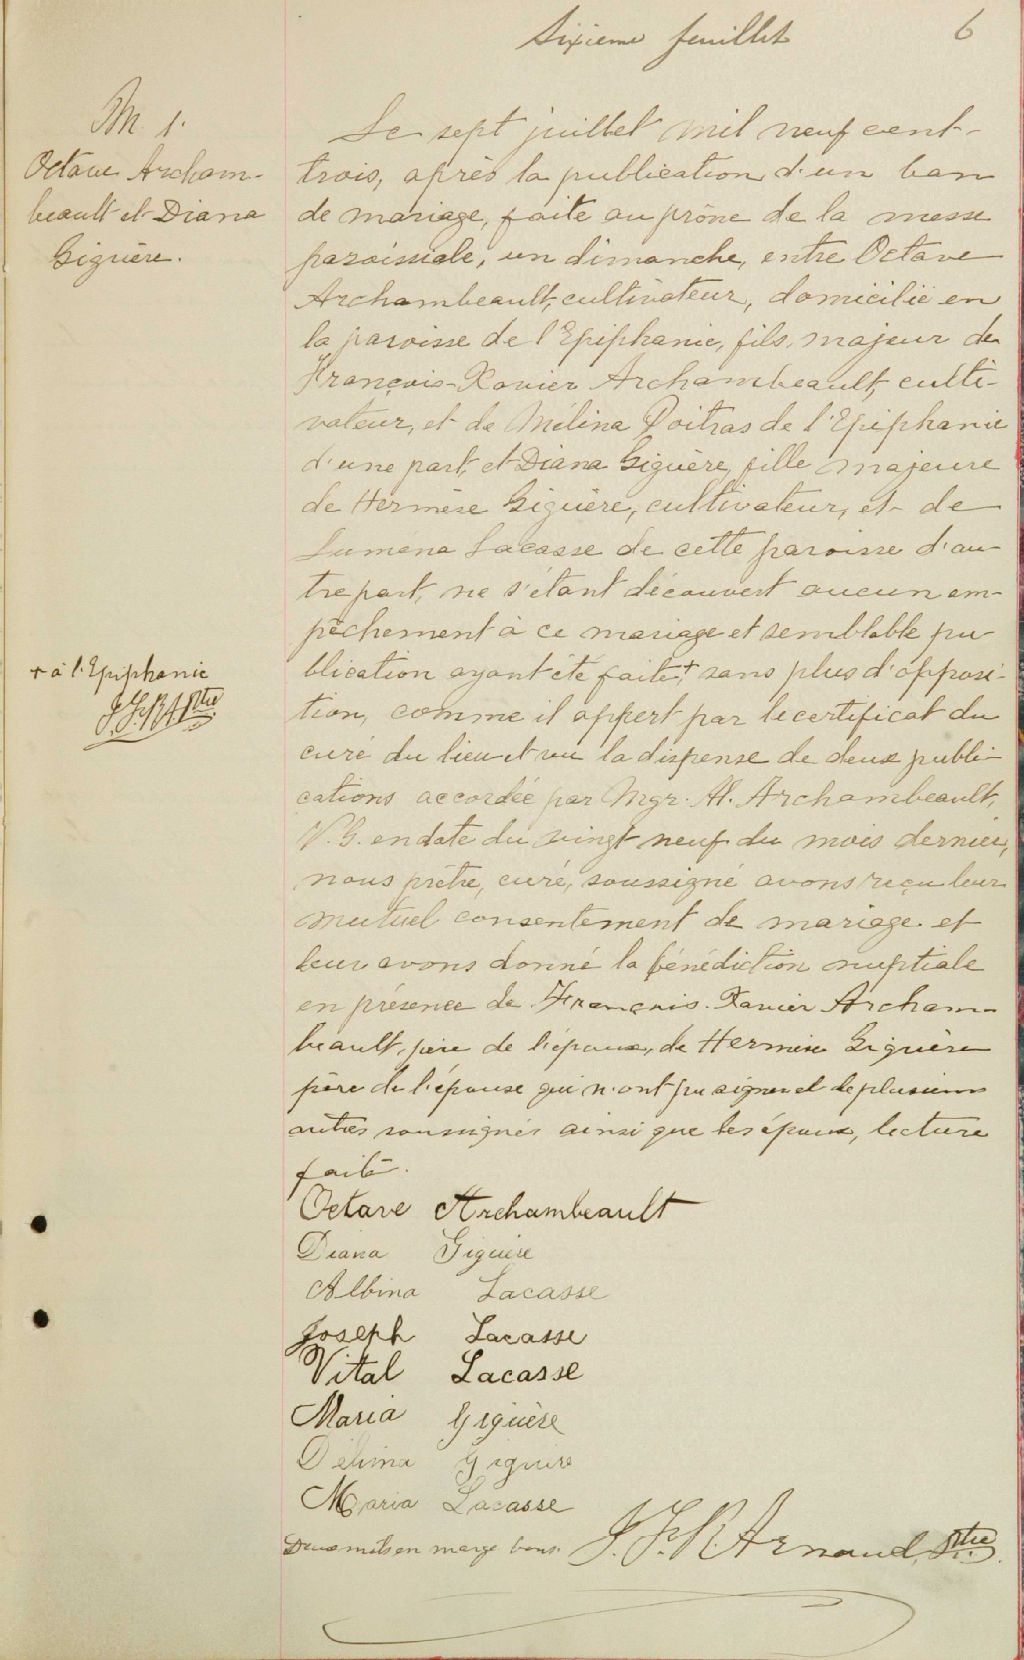 Sixieme feuillet 6
M. 1.
Octave Archam-
beault et Diana
Giguère.
Le sept juillet mil neuf cent-
trois, après la publication d'un ban
de mariage, faite au prône de la messe
paroissiale, un dimanche, entre Octave
Archambeault, cultivateur, domicilié en
la paroisse de l'Epiphanie, fils, majeur de
François-Xavier Archambeault, culti-
vateur, et de Mélina Poitras de l'Epiphanie
d'une part, et Diana Giguère, fille majeure
de Hermèse Giguère, cultivateur, et de
Lumena Lacasse de cette paroisse d'au-
tre part, ne s'étant découvert aucun em-
pêchement à ce mariage et semblable pu-
blication ayant été faite + sans plus d'opposi-
tion, comme il appert par le certificat du
curé du lieu et vu la dispense de deux publi-
cations accordée par Mgr. Al. Archambeault,
V.G. en date du vingt neuf du mois dernier,
nous prêtre, curé, soussigné avons reçu leur
mutuel consentement de mariage et
leur avons donné la bénédiction nuptiale
en présence de François-Xavier Archam-
beault, père de l'époux, de Hermèse Giguère
père de l'épouse qui n'ont pu signer et de plusieurs
autres soussignés ainsi que les époux, lecture
faite.
+ à l'Epiphanie
J.F.R.A Ptre
Octave Archambeault
Diana Giguère
Albina Lacasse
Joseph Lacasse
Vital Lacasse
Maria Giguère
Délima Giguère
Maria Lacasse
Deux mots en marge bons. J. F. R. Arnaud, Ptre.